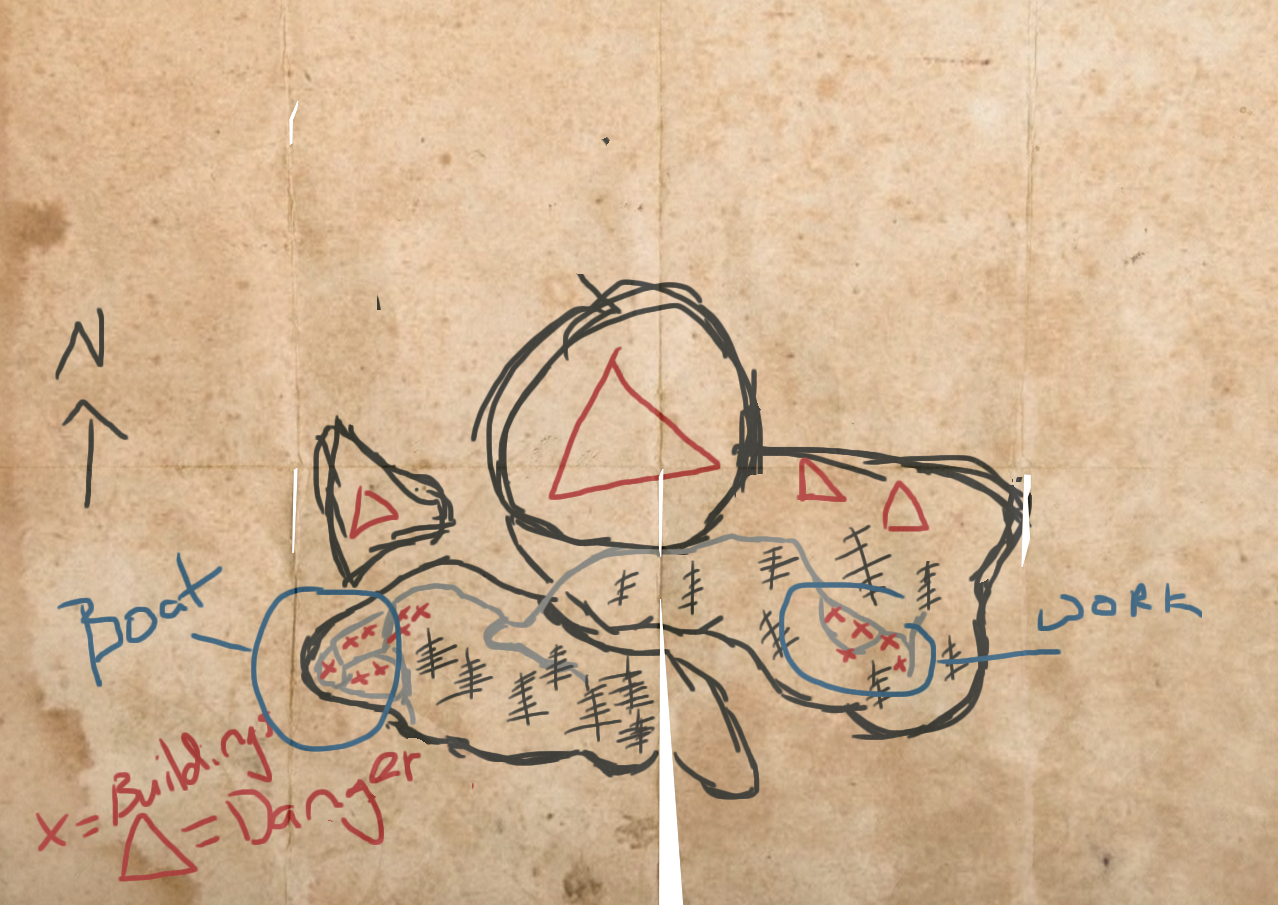 N
Boat
WORK
x = Buildings
△ = Danger